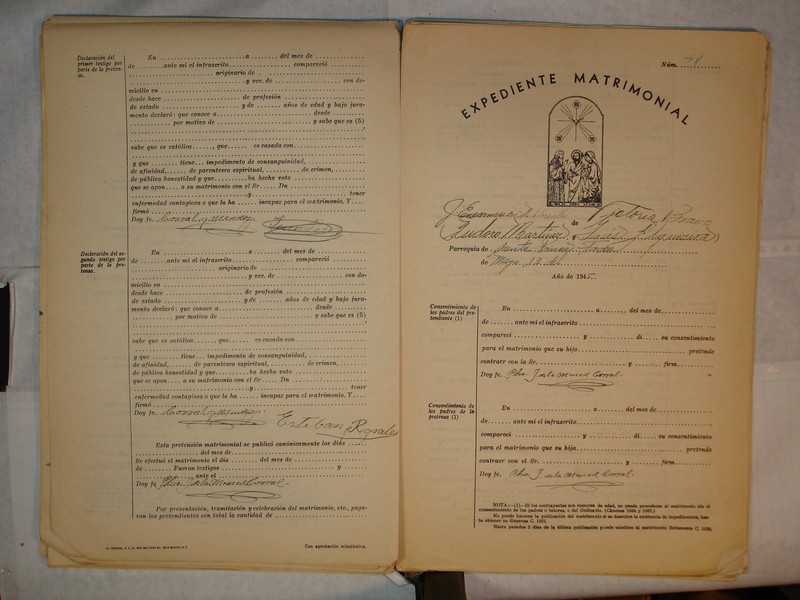 Declaración del
primer testigo por
parte de la preten-
sa.
En ........ a ........ del mes de ........
de ........ ante mí el infrascrito ........ compareció ........
........ originario de ........
........ y vec. de ........ con do-
micilio en ........
desde hace ........ de profesión ........
de estado ........ y de ........ años de edad y bajo jura-
mento declaró: que conoce a ........ desde ........
........ por motivo de ........ y sabe que es (5)
sabe que es católica ......, que ...... es casada con ........
y que ........ tiene.... impedimento de consanguinidad, ........
de afinidad, ........ de parentesco espiritual, ........ de crimen, ........
de pública honestidad y que ........ ha hecho voto ........
que se opon.... a su matrimonio con el Sr..... Dn ........
........ y ........ tener
enfermedad contagiosa o que la ha ...... incapaz para el matrimonio. Y....
firmó ........
Doy fe.
Declaración del se-
gundo testigo por
parte de la pre-
tensa.
En ........ a ........ del mes de ........
de ........ ante mí el infrascrito ........ compareció ........
........ originario de ........
........ y vec. de ........ con do-
micilio en ........
desde hace ........ de profesión ........
de estado ........ y de ........ años de edad y bajo jura-
mento declaró: que conoce a ........ desde ........
........ por motivo de ........ y sabe que es (5)
sabe que es católica ......, que ...... es casada con ........
y que ........ tiene.... impedimento de consanguinidad, ........
de afinidad, ........ de parentesco espiritual, ........ de crimen,
de pública honestidad y que ........ ha hecho voto ........
que se opon.... a su matrimonio con el Sr..... Dn ........
........ y ........ tener
enfermedad contagiosa o que la ha ...... incapaz para el matrimonio. Y....
firmó ........
Doy fe. Esteban Rosales
Esta pretensión matrimonial se publicó canónicamente los días ........
........ del mes de ........
Se efectuó el matrimonio el día ........ del mes de ........
de ........ Fueron testigos ........ y ........
........ ante el ........
Doy fe. Pbro. J. de la Merced Corral.
Por presentación, tramitación y celebración del matrimonio, etc., paga-
ron los pretendientes con total la cantidad de ........
Con aprobación eclesiástica.
Núm. 48
EXPEDIENTE MATRIMONIAL
de Victoria Bravo
Isidoro Martínez y
Parroquia de Santa
de
Año de 194
Consentimiento de
los padres del pre-
tendiente (1)
En ........ a ........ del mes de ........
de ........ ante mí el infrascrito ........
comparecí ........ y ........ di..... su consentimiento
para el matrimonio que su hijo ........ pretende
contraer con la Sr. ........ y ........ firm....
Doy fe. Pbro. J. de la Merced Corral.
Consentimiento de
los padres de la
pretensa (1)
En ........ a ........ del mes de ........
de ........ ante mí el infrascrito ........
comparecí ........ y ........ di..... su consentimiento
para el matrimonio que su hija ........ pretende
contraer con el Sr. ........ y ........ firm....
Doy fe. Pbro. J. de la Merced Corral.
NOTA:—(1)—Si los contrayentes son menores de edad, no puede procederse al matrimonio sin el
consentimiento de los padres o tutores, o del Ordinario. (Cánones 1034 y 1067.)
No puede hacerse la publicación del matrimonio si se descubre la existencia de impedimentos, has-
ta obtener su dispensa C. 1031.
Hasta pasados 3 días de la última publicación